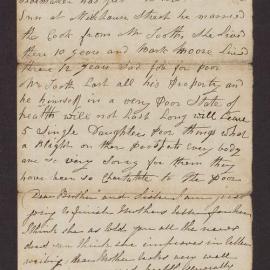 Son at Millhouse Street he married
the Cook from Mr Tooths, She lived
there 10 years and Mark Moore Lived
there 12 years Sad Job for poor
Mr Tooth Lost all his Property and
he himself in a very Poor State of
health will not Last Long will Leave
5 Single Daughters Poor things what
a Blight on their Prospects every body
are so very Sorry for them they
have been so Charitable to the Poor
Dear Brother and Sister I am just
going to finish Mothers letter for her
I think she as told you all the news
dear one think she improves in letter
writing dear Mother looks very well